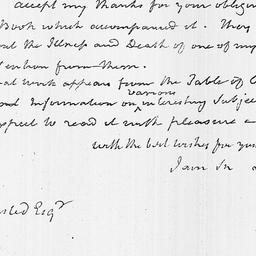 accept my thanks for your oblig
Book which accompanied it. They
the Illness and Death of one of my
tention from them.
work appears from the Table of C
and Information on various interesting Subjec
expect to read it with pleasure a
with the best wishes for you
I am Sr
sted Esqr